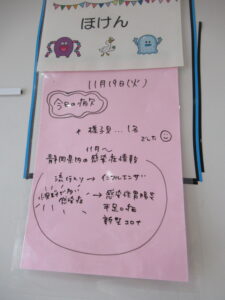 ほけん
11月19日(火)
今日の病欠
+ 様子見…1名
でした
11月〜
静岡県内の感染症情報
流行入り → インフルエンザ
→ 感染性胃腸炎
手足口病
新型コロナ